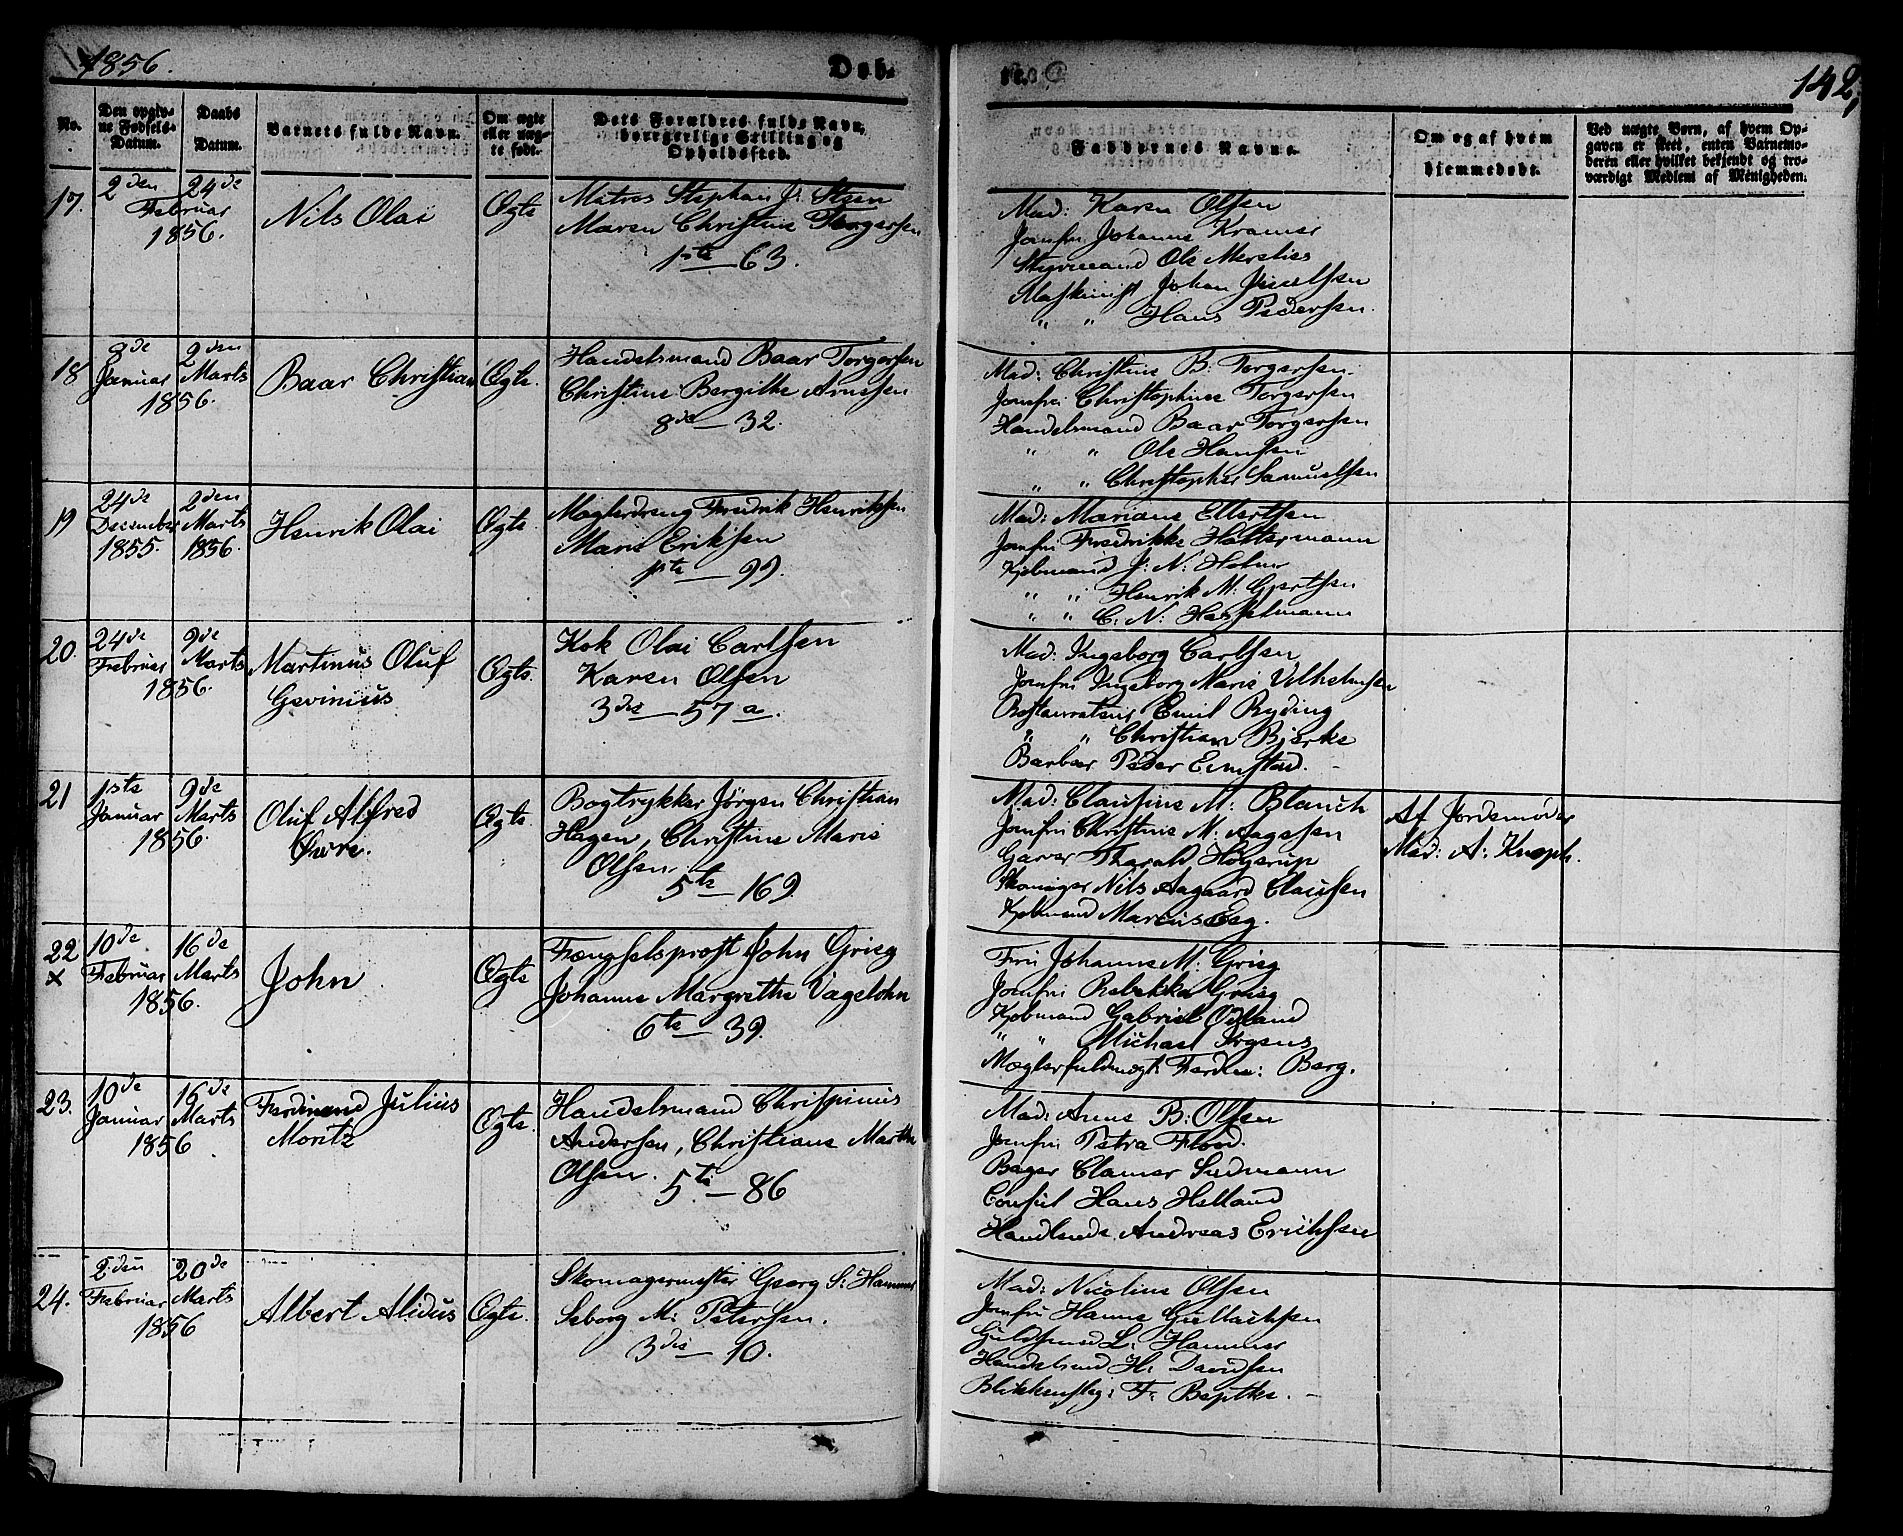 1856.
Døb.
142,
No.
Den opgiv-
ne Fødsels-
Datum.
Daabs
Datum.
Barnets fulde Navn.
Om ægte
eller uæg-
te født.
Dets Forældres fulde Navn,
borgerlige Stilling og
Opholdssted.
Faddernes Navne.
Om og af hvem
hjemmedøbt.
Ved uægte Børn, af hvem Op-
gaven er skeet, enten Barnemo-
deren eller hvilket bekjendt og tro-
værdigt Medlem af Menigheden.
17.
2den
Februar
24de
1856.
Nils Olai
Ægte
Matros Stephan J. Steen
Maren Christine Torgersen
1ste — 63.
Mad: Karen Olsen
Jomfru Johanne Kramer
Styrmand Ole
Maskinist Johan
" " Hans Pedersen.
18
8de
Januar
2den
Marts
1856.
Baar Christian
Ægte.
Handelsmand Baar Torgersen
Christine Bergithe Arnesen
8de — 32.
Mad: Christine B. Torgersen.
Jomfru Christophine Torgersen
Handelsmand Baar Torgersen
" " Ole Hansen
" " Christopher Samuelsen
19
24de
December
1855.
2den
Marts
1856.
Henrik Olai
Ægte.
Maglerdreng Fredrik Henriksen
Marie Eriksen
1ste — 99.
Mad: Mariane Ellertsen
Jomfru Fredrikke Haltermann
Kjøbmand J. N. Holm
" " Henrik M. Gjertsen
" " C. N. Hasselmann
20.
24de
Februar
9de
Marts
1856.
Martinus Oluf
Gevinius
Ægte.
Kok Olai Carlsen
Karen Olsen
3die — 57 a.
Mad: Ingeborg Carlsen
Jomfru Ingeborg Marie Vilhelmsen
Restaurateur Emil Ryding
" " Christian Bjerke
Barber Peder Eimstad. —
21
1ste
Januar
9de
Marts
1856.
Oluf Alfred
Øvre.
Ægte.
Bogtrykker Jörgen Christian
Hagen, Christine Marie
Olsen.
5te — 169.
Mad: Clausine M. Blauch
Jomfru Christine M. Aagesen
Garver Tharald Høgerup
Skomager Nils Aagaard Clausen
Kjøbmand Marcus Eeg.
Af Jordemoder
Mad: A. Knoph.
22
x
10de
Februar
16de
Marts
1856.
John
Ægte
Fængselsprost John Grieg
Johanne Margrethe Vagelohn
6te — 39.
Fru Johanne M. Grieg
Jomfru Rebekka Grieg
Kjøbmand Gabriel Odland
" " Michael Krgens
Mæglerfuldmægt. Ferdin: Berg.
23.
10de
Januar
16de
Marts
1856
Ferdinand Julius
Moritz
Ægte.
Handelsmand Chrispinus
Andersen, Christiane Marthe
Olsen.
5te — 86
Mad: Anne B. Olsen
Jomfru Petra Flood.
Bager Clamer Sudmann
Consul Hans Helland
Handlende Andreas Erichsen
24.
2den
Februar
20de
Marts
1856
Albert Alidus
Ægte.
Skomagermester Georg S. Hammer
Seborg M. Petersen.
3die — 10.
Mad: Nicoline Olsen
Jomfru Hanne Gullachsen
Guldsmed L. Hammer
Handelsmd H. Davidsen
Blikkenslg: F. Beythe. —